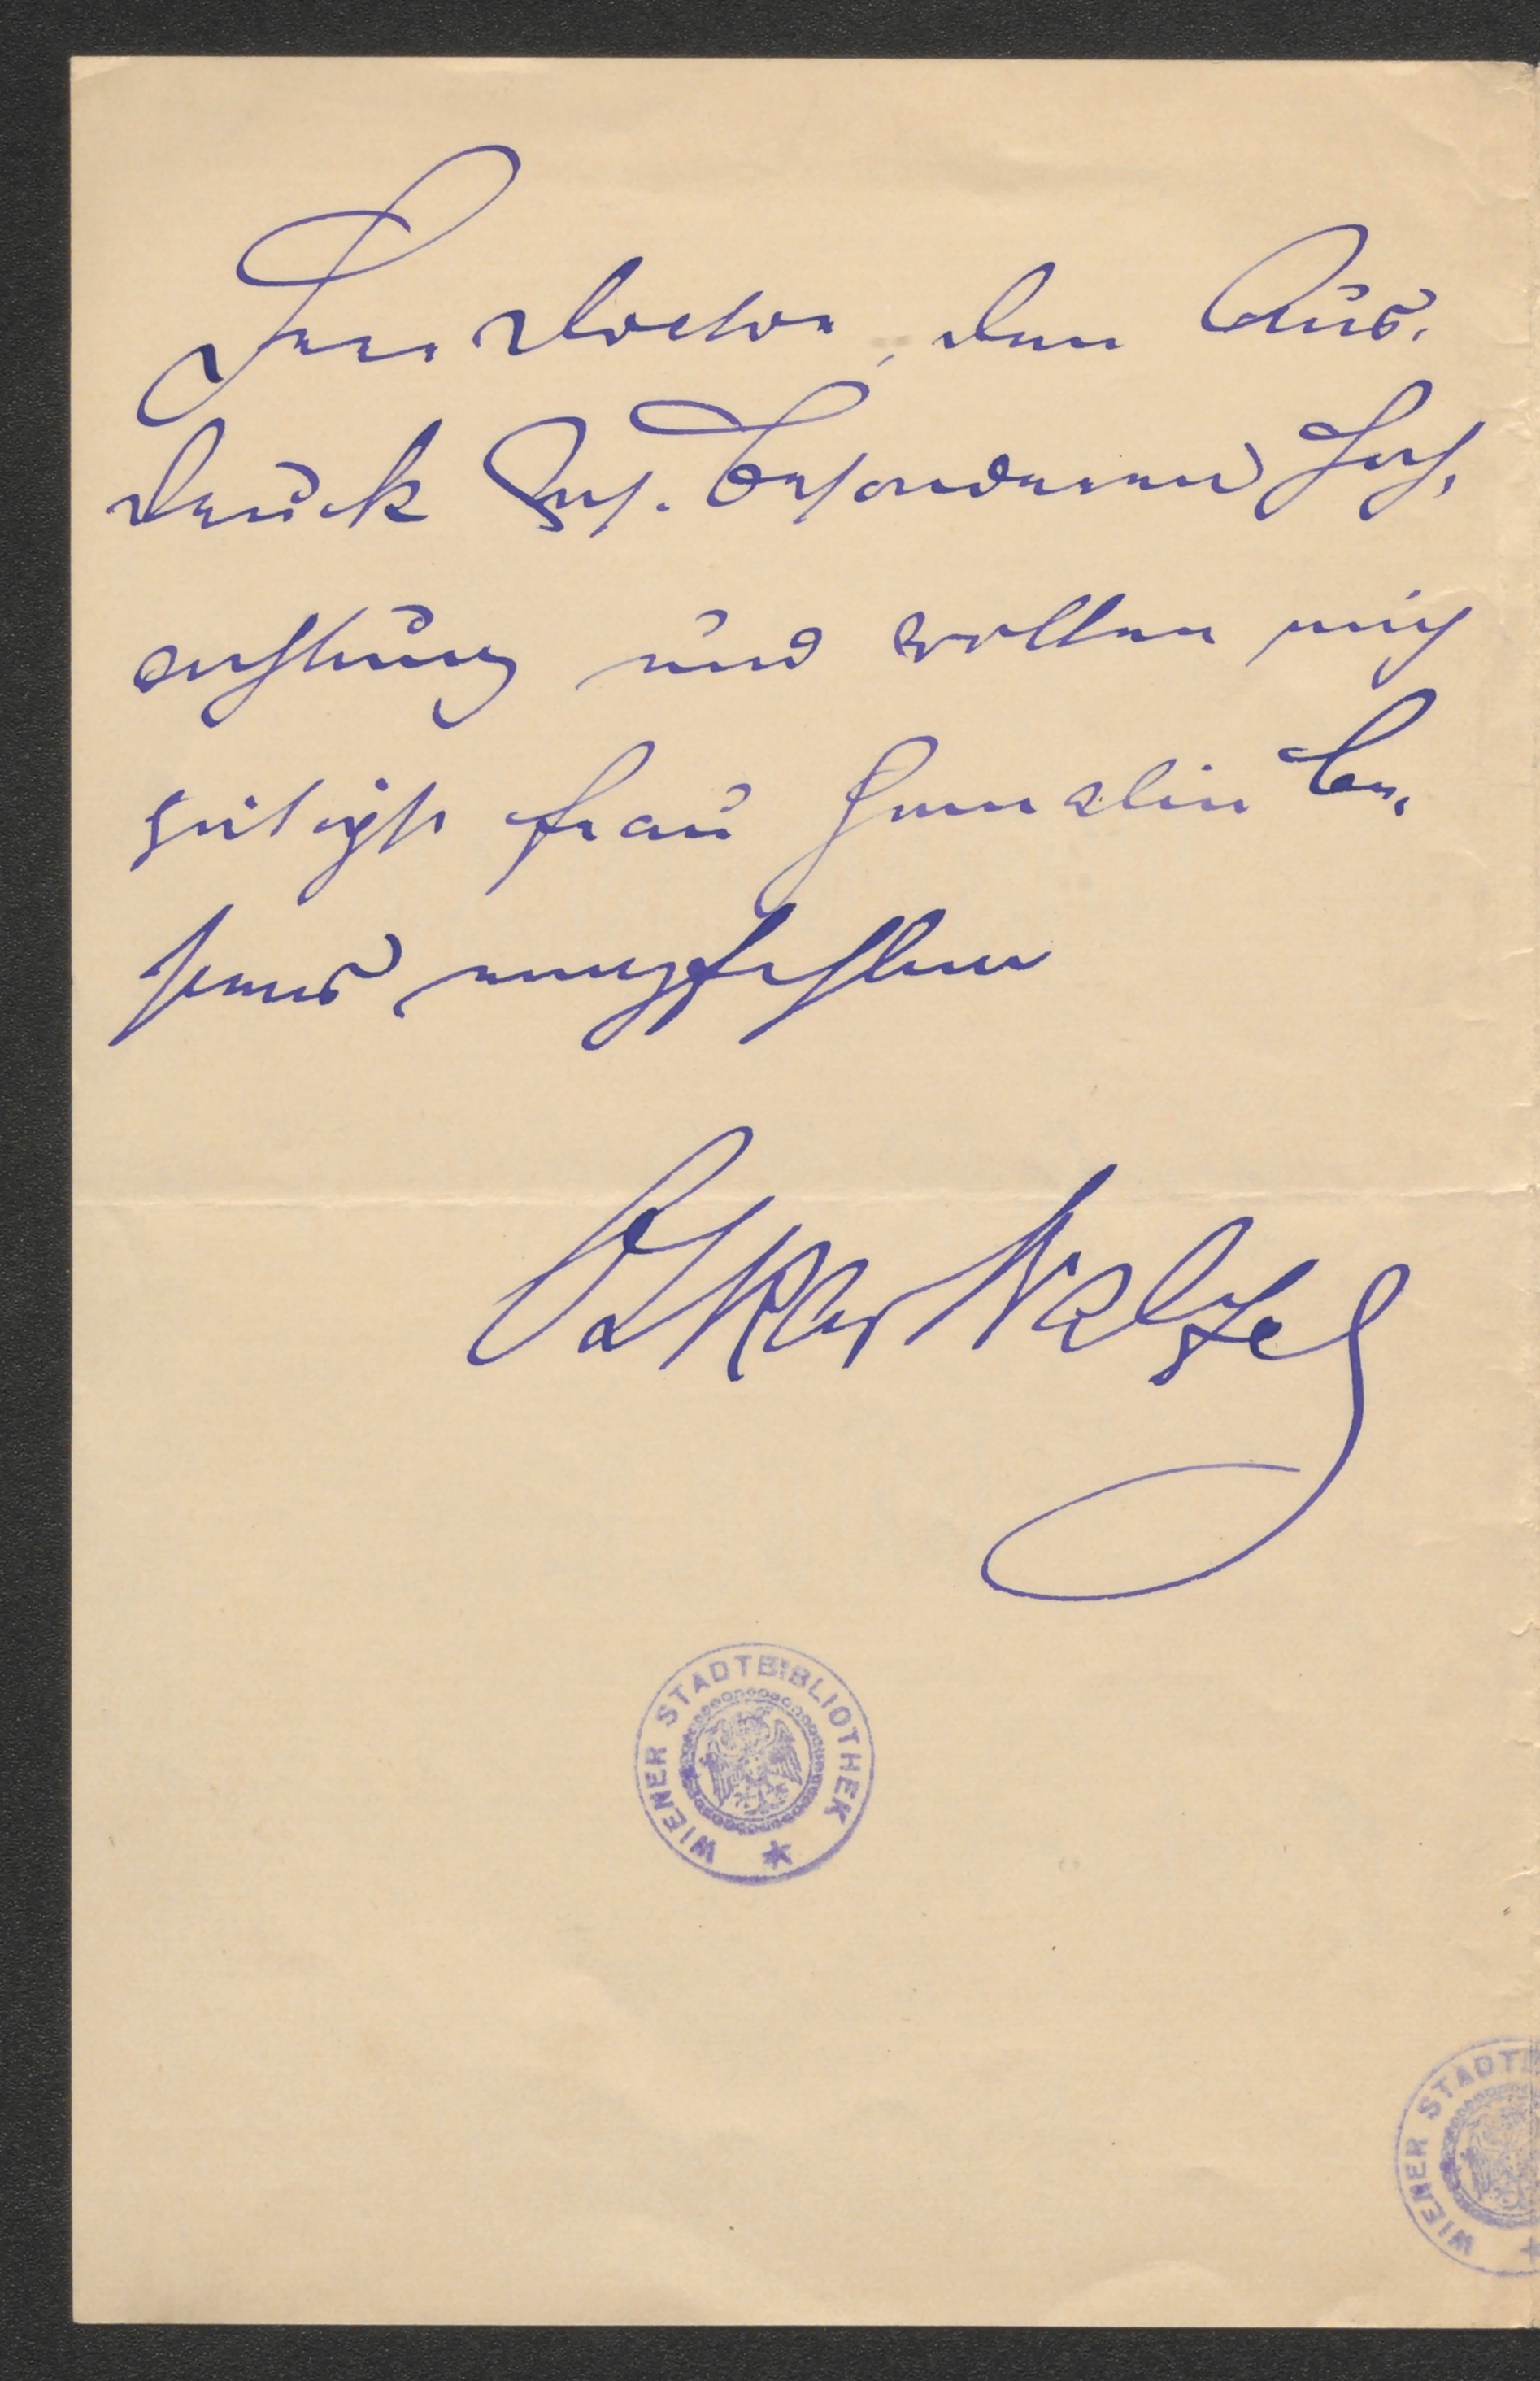 Herr Doctor, den Aus-
druck ganz besonderer Hoch-
achtung und wollen mich
gütigst Frau Gemalin be-
stens empfehlen
Oskar Walzel
WIENER STADTBIBLIOTHEK
WIENER STADTB